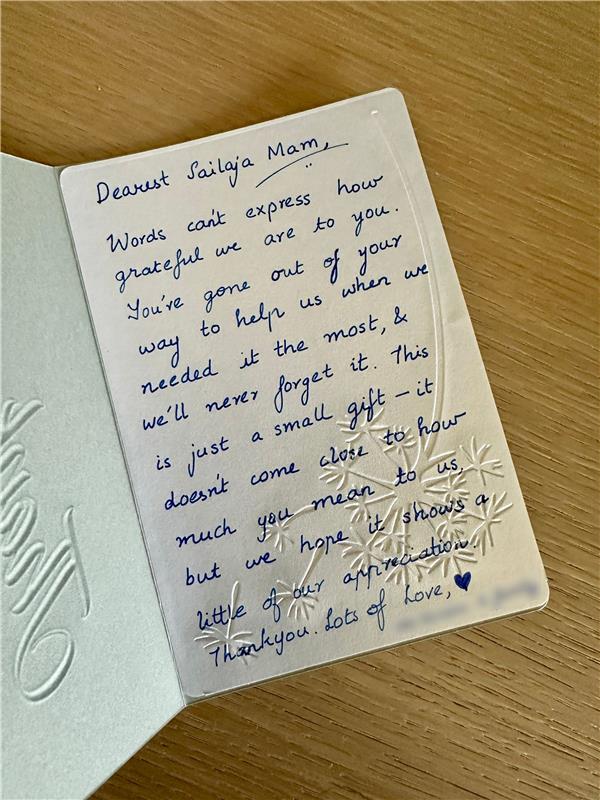 Dearest Sailaja Mam,
Words can't express how
grateful we are to you.
You're gone out of your
way to help us when we
needed it the most, &
we'll never forget it. This
is just a small gift – it
doesn't come close to how
much you mean to us,
but we hope it shows a
little of our appreciation.
Thankyou. Lots of Love, ♥
Thank